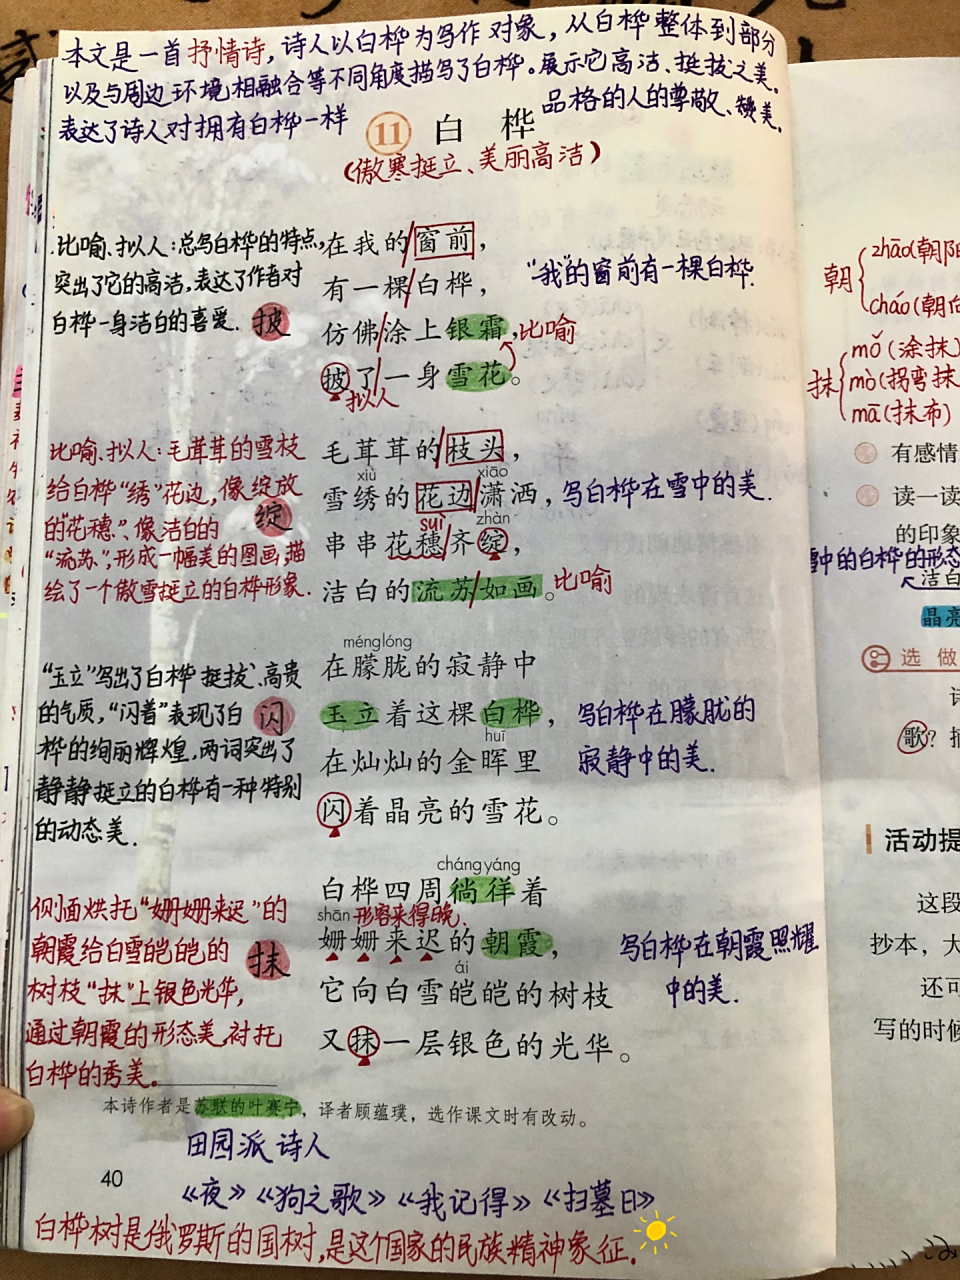 本文是一首抒情诗，诗人以白桦为写作对象，从白桦整体到部分
以及与周边环境相融合等不同角度描写了白桦。展示它高洁、挺拔之美。
表达了诗人对拥有白桦一样
品格的人的尊敬、赞美。
11 白桦
（傲寒挺立、美丽高洁）
比喻、拟人：总写白桦的特点，
突出了它的高洁，表达了作者对
白桦一身洁白的喜爱.
披
在我的/窗前，
有一棵/白桦，
仿佛/涂上银霜，比喻
披了/一身雪花。
拟人
“我”的窗前有一棵白桦.
比喻、拟人：毛茸茸的雪枝
给白桦“绣”花边，像绽放
的“花穗”、像洁白的
“流苏”，形成一幅美的图画，描
绘了一个傲雪挺立的白桦形象.
绽
毛茸茸的/枝头，
xiù xiāo
雪绣的花边/潇洒，
suì zhàn
串串花穗/齐绽，
洁白的流苏/如画。比喻
写白桦在雪中的美.
“玉立”写出了白桦挺拔、高贵
的气质，“闪着”表现了白
桦的绚丽辉煌，两词突出了
静静挺立的白桦有一种特别
的动态美.
闪
ménglóng
在朦胧的寂静中
玉立着这棵白桦，
huī
在灿灿的金晖里
闪着晶亮的雪花。
写白桦在朦胧的
寂静中的美.
侧面烘托“姗姗来迟”的
朝霞给白雪皑皑的
树枝“抹”上银色光华，
通过朝霞的形态美，衬托
白桦的秀美。
抹
chángyáng
白桦四周徜徉着
shān 形容来得晚.
姗姗来迟的朝霞，
ái
它向白雪皑皑的树枝
又抹一层银色的光华。
写白桦在朝霞照耀
中的美.
本诗作者是苏联的叶赛宁，译者顾蕴璞，选作课文时有改动。
田园派诗人
40
《夜》《狗之歌》《我记得》《扫墓日》
白桦树是俄罗斯的国树，是这个国家的民族精神象征.
朝 zhāo(朝阳
cháo(朝向
抹 mǒ(涂抹)
mò(拐弯抹
mā(抹布)
有感情
读一读
的印象
雪中的白桦的形态
洁白
晶亮
选做
歌？摘
活动提
这段
抄本，大
还可
写的时候